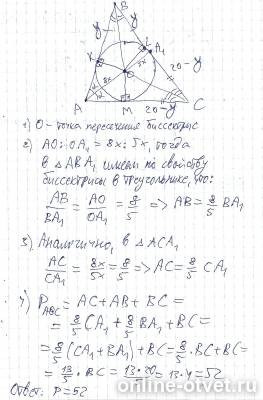 B
y
y
K
L
A₁
8x
5x
O
20-y
A
M
20-y
C
1) O - точка пересечения биссектрис
2) AO:OA₁ = 8x:5x, тогда
в △ABA₁ имеем по свойству
биссектрисы в треугольнике, что:
AB/BA₁ = AO/OA₁ = 8/5 => AB = 8/5 BA₁
3) Аналогично, в △ACA₁
AC/CA₁ = 8x/5x = 8/5 => AC = 8/5 CA₁
4) P_ABC = AC+AB+BC =
= 8/5 CA₁ + 8/5 BA₁ + BC =
= 8/5 (CA₁ + BA₁) + BC = 8/5 · BC + BC =
= 13/5 BC = 13·20/5 = 13·4 = 52
Ответ: P = 52
online-otvet.ru